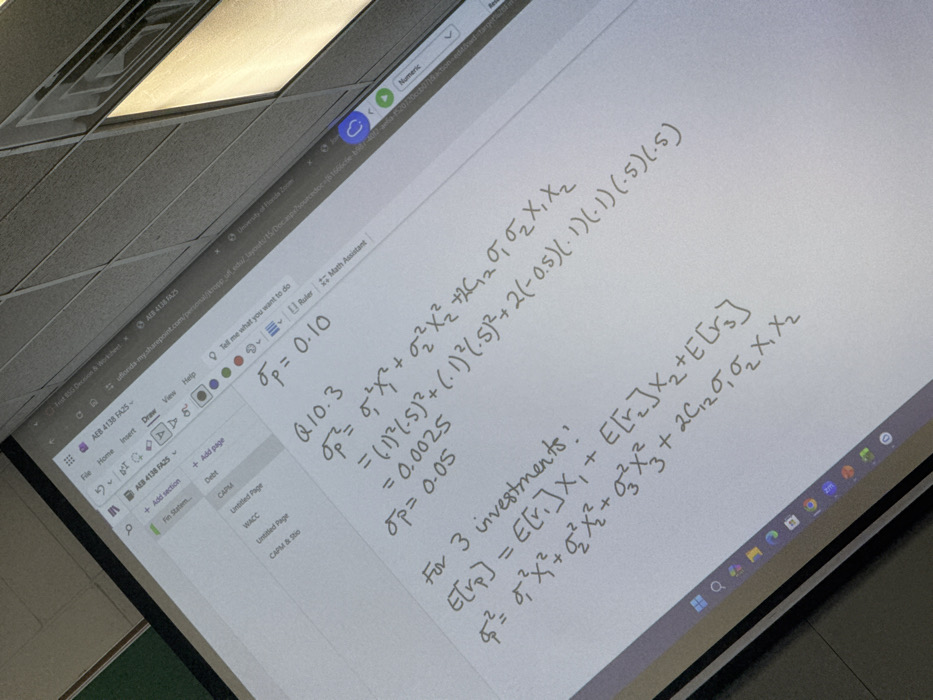 AEB 4138 FA25
Numeric
AEB 4138 FA25
File Home Insert Draw View Help
Tell me what you want to do
Ruler
Math Assistant
AEB 4138 FA25
+ Add section
+ Add page
Fin Statem...
Debt
CAPM
Untitled Page
WACC
Untitled Page
CAPM & Sto
σp = 0.10
Q10.3
σp² = σ₁²X₁² + σ₂²X₂² + 2C₁₂σ₁σ₂X₁X₂
= (.1)²(.5)² + (.1)²(.5)² + 2(-0.5)(.1)(.1)(.5)(.5)
= 0.0025
σp = 0.05
For 3 investments:
E[rp] = E[r₁]X₁ + E[r₂]X₂ + E[r₃]
σp² = σ₁²X₁² + σ₂²X₂² + σ₃²X₃² + 2C₁₂σ₁σ₂X₁X₂